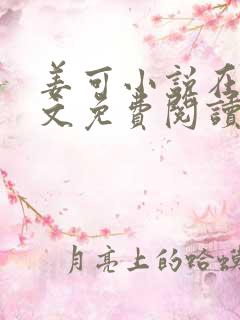 姜可小说在
文免費閱讀
月亮上的蛤蟆